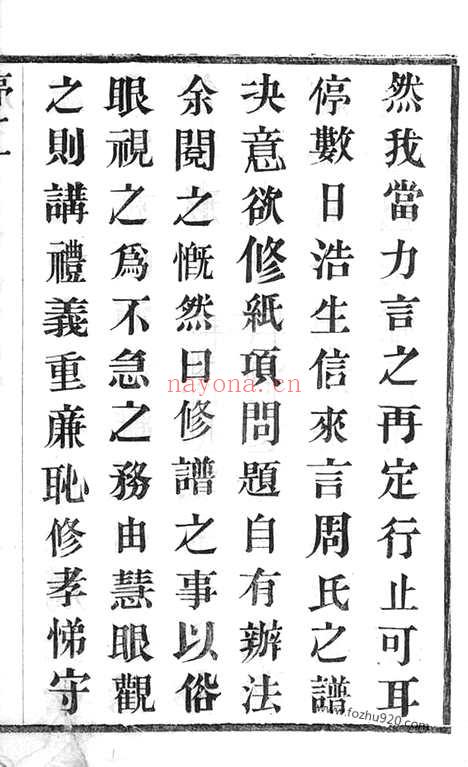 然我當力言之再定行止可耳
停數日浩生信來言周氏之譜
决意欲修紙項問題自有辦法
余閱之慨然曰修譜之事以俗
眼視之為不急之務由慧眼觀
之則講禮義重廉恥修孝悌守
nayona.cn
www.fozhu920.com